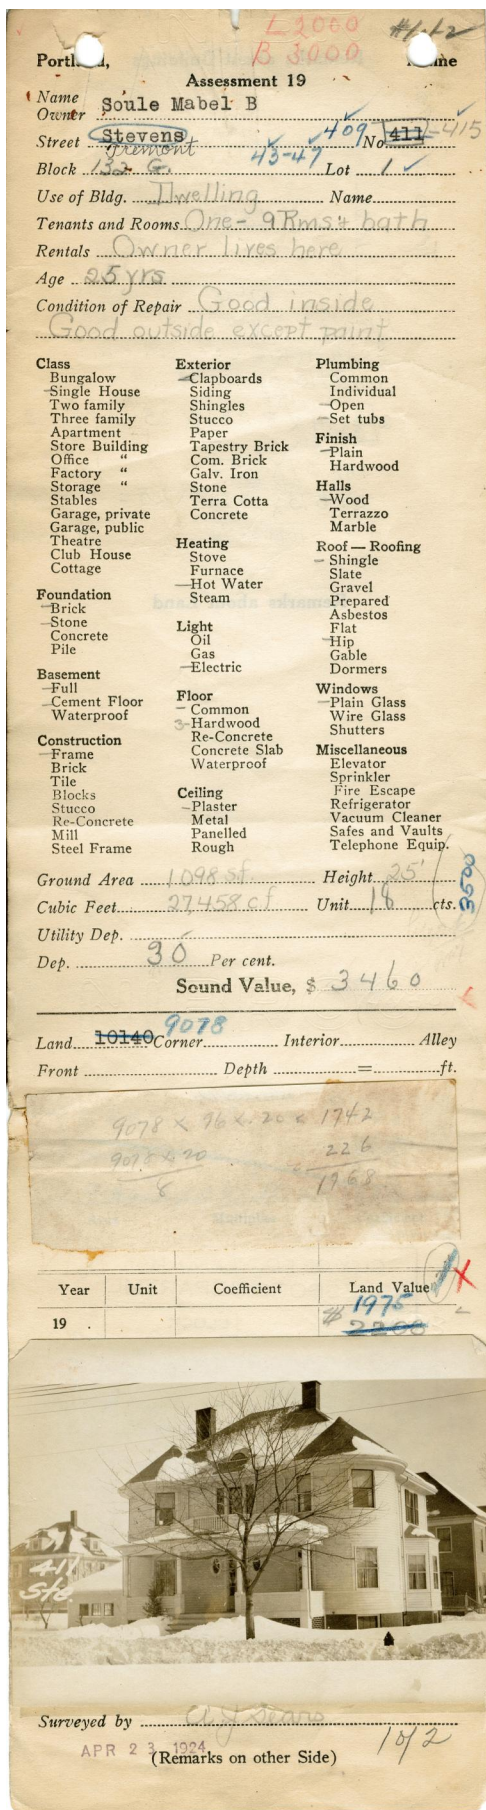 L 2000
B 3000
#1-12
Portland, Maine
Assessment 19
Name
Owner Soule Mabel B
409 415
Street Stevens No 411
Fremont 43-47
Block 132 G. Lot 1
Use of Bldg. Dwelling Name
Tenants and Rooms One - 9 Rms + bath
Rentals Owner lives here
Age 25 yrs
Condition of Repair Good inside
Good outside except paint
Class
Bungalow
Single House
Two family
Three family
Apartment
Store Building
Office "
Factory "
Storage "
Stables
Garage, private
Garage, public
Theatre
Club House
Cottage
Foundation
Brick
Stone
Concrete
Pile
Basement
Full
Cement Floor
Waterproof
Construction
Frame
Brick
Tile
Blocks
Stucco
Re-Concrete
Mill
Steel Frame
Exterior
Clapboards
Siding
Shingles
Stucco
Paper
Tapestry Brick
Com. Brick
Galv. Iron
Stone
Terra Cotta
Concrete
Heating
Stove
Furnace
Hot Water
Steam
Light
Oil
Gas
Electric
Floor
Common
3-Hardwood
Re-Concrete
Concrete Slab
Waterproof
Ceiling
Plaster
Metal
Panelled
Rough
Plumbing
Common
Individual
Open
Set tubs
Finish
Plain
Hardwood
Halls
Wood
Terrazzo
Marble
Roof — Roofing
Shingle
Slate
Gravel
Prepared
Asbestos
Flat
Hip
Gable
Dormers
Windows
Plain Glass
Wire Glass
Shutters
Miscellaneous
Elevator
Sprinkler
Fire Escape
Refrigerator
Vacuum Cleaner
Safes and Vaults
Telephone Equip.
Ground Area 1098 sf. Height 25'
Cubic Feet 27458 cf Unit 18 cts.
3500
Utility Dep.
Dep. 30 Per cent.
Sound Value, $ 3460
9078
Land 10140 Corner Interior Alley
Front Depth = ft.
9078 x 96 x .20 = 1742
9078 x 20 226
8 1968
Year Unit Coefficient Land Value
1975
19 $ 2200
411
Ste.
Surveyed by
APR 23 1924
(Remarks on other Side)
1 of 2